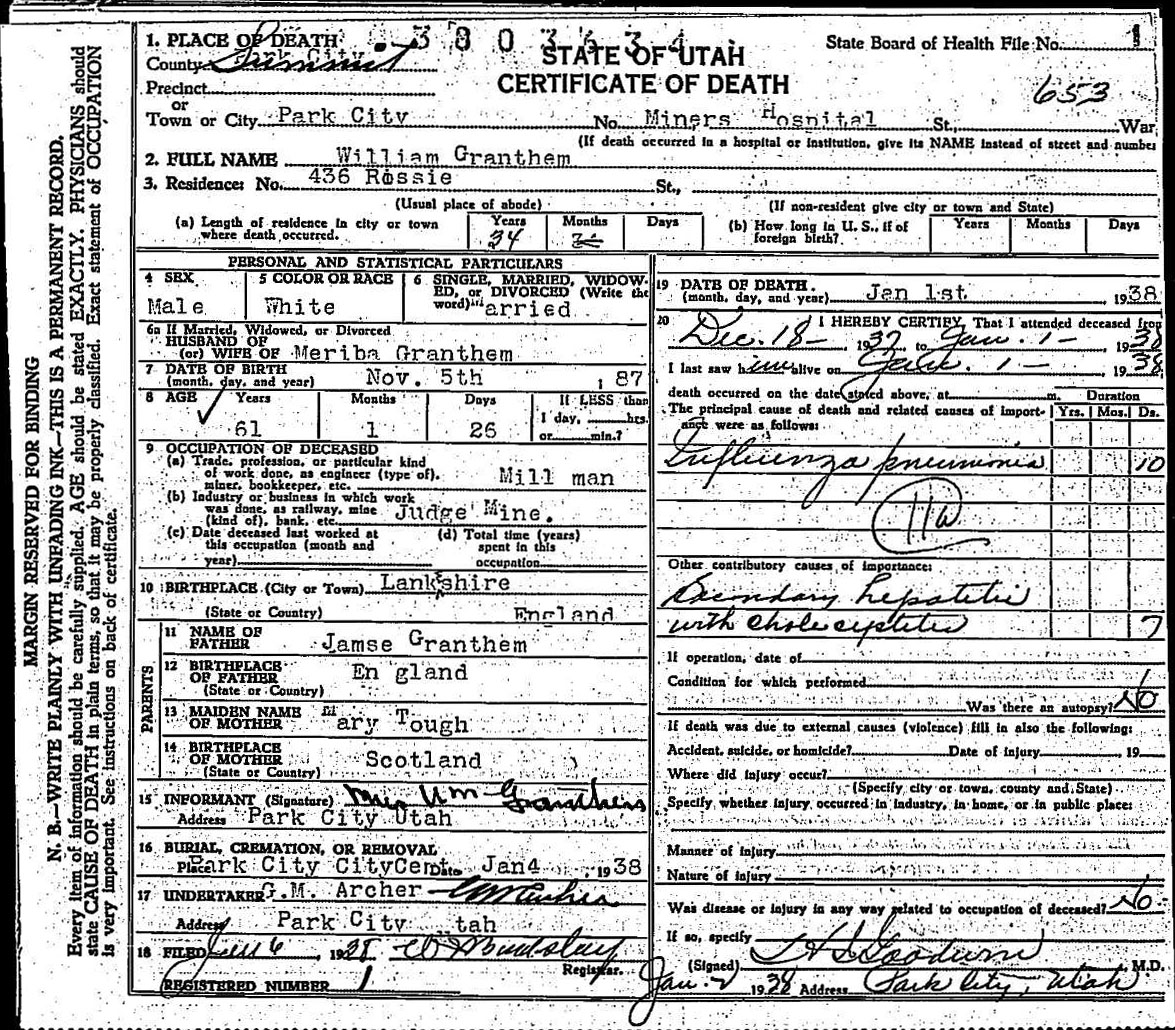 MARGIN RESERVED FOR BINDING
N. B.—WRITE PLAINLY WITH UNFADING INK—THIS IS A PERMANENT RECORD.
Every item of information should be carefully supplied. AGE should be stated EXACTLY. PHYSICIANS should
state CAUSE OF DEATH in plain terms, so that it may be properly classified. Exact statement of OCCUPATION
is very important. See instructions on back of certificate.
3 8 0 0 3 6 3 4
1. PLACE OF DEATH
County Summit
STATE OF UTAH
CERTIFICATE OF DEATH
State Board of Health File No. 1
653
Precinct
or
Town or City Park City No. Miners Hospital St., War
(If death occurred in a hospital or institution, give its NAME instead of street and number
2. FULL NAME William Granthem
3. Residence: No. 436 Rossie St.,
(Usual place of abode) (If non-resident give city or town and State)
(a) Length of residence in city or town where death occurred. Years 34 Months Days
(b) How long in U. S., if of foreign birth? Years Months Days
PERSONAL AND STATISTICAL PARTICULARS
4 SEX Male
5 COLOR OR RACE White
6 SINGLE, MARRIED, WIDOWED, or DIVORCED (Write the word) married
6a If Married, Widowed, or Divorced
HUSBAND OF
(or) WIFE OF Meriba Granthem
7 DATE OF BIRTH
(month, day, and year) Nov. 5th , 87
8 AGE Years 61 Months 1 Days 26 If LESS than 1 day, hrs. or min.?
9 OCCUPATION OF DECEASED
(a) Trade, profession, or particular kind
of work done, as engineer (type of),
miner, bookkeeper, etc. Mill man
(b) Industry or business in which work
was done, as railway, mine
(kind of), bank, etc. Judge Mine.
(c) Date deceased last worked at
this occupation (month and
year)
(d) Total time (years)
spent in this
occupation
10 BIRTHPLACE (City or Town) Lankshire
(State or Country) England
PARENTS
11 NAME OF FATHER Jamse Granthem
12 BIRTHPLACE OF FATHER (State or Country) En gland
13 MAIDEN NAME OF MOTHER Mary Tough
14 BIRTHPLACE OF MOTHER (State or Country) Scotland
15 INFORMANT (Signature) Mrs Wm Granthem
Address Park City Utah
16 BURIAL, CREMATION, OR REMOVAL
Place Park City CityCem Date Jan4 , 1938
17 UNDERTAKER G.M. Archer GM Archer
Address Park City tah
18 FILED Jan 6 1938
Registrar.
REGISTERED NUMBER 1
19 DATE OF DEATH.
(month, day, and year) Jan 1st 1938
20 I HEREBY CERTIFY, That I attended deceased from
Dec. 18- 1937 to Jan. 1- 1938
I last saw him alive on Jan. 1- 1938
death occurred on the date stated above, at m. Duration
The principal cause of death and related causes of importance were as follows: Yrs. Mos. Ds.
Influenza pneumonia 10
11a
Other contributory causes of importance:
Secondary hepatitis
with cholecystitis 7
If operation, date of
Condition for which performed
Was there an autopsy? No
If death was due to external causes (violence) fill in also the following:
Accident, suicide, or homicide? Date of injury 19
Where did injury occur?
(Specify city or town, county and State)
Specify whether injury occurred in industry, in home, or in public place:
Manner of injury
Nature of injury
Was disease or injury in any way related to occupation of deceased? No
If so, specify
(Signed) M.D.
Jan. 2 1938 Address Park City, Utah